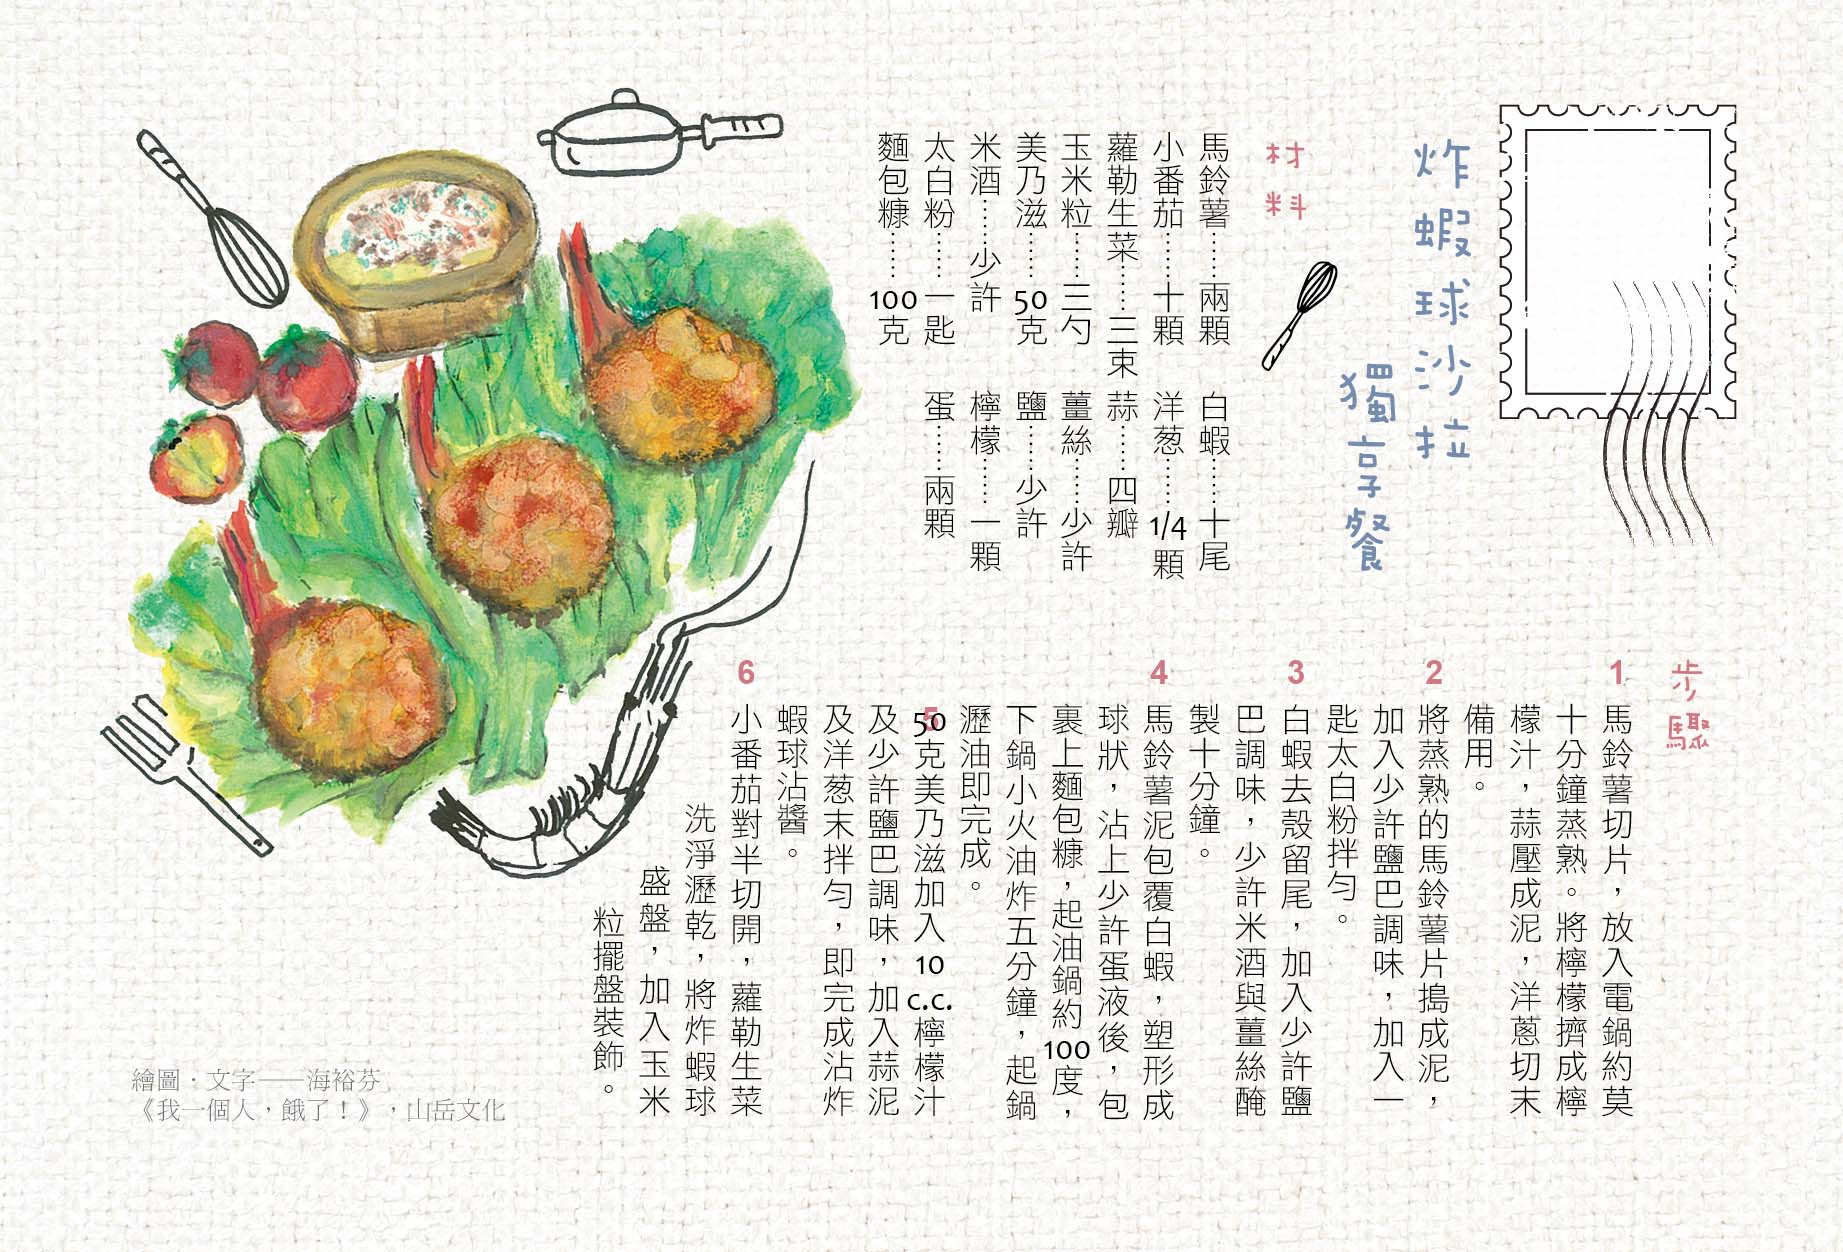 炸蝦球沙拉
獨享餐
材料
馬鈴薯……兩顆
小番茄……十顆
蘿勒生菜……三束
玉米粒……三勺
美乃滋……50克
米酒……少許
太白粉……一匙
麵包糠……100克
白蝦……十尾
洋葱……1/4顆
蒜……四瓣
薑絲……少許
鹽……少許
檸檬……一顆
蛋……兩顆
步驟
1
馬鈴薯切片，放入電鍋約莫
十分鐘蒸熟。將檸檬擠成檸
檬汁，蒜壓成泥，洋蔥切末
備用。
2
將蒸熟的馬鈴薯片搗成泥，
加入少許鹽巴調味，加入一
匙太白粉拌勻。
3
白蝦去殼留尾，加入少許鹽
巴調味，少許米酒與薑絲醃
製十分鐘。
4
馬鈴薯泥包覆白蝦，塑形成
球狀，沾上少許蛋液後，包
裹上麵包糠，起油鍋約100度，
下鍋小火油炸五分鐘，起鍋
瀝油即完成。
5
50克美乃滋加入10c.c.檸檬汁
及少許鹽巴調味，加入蒜泥
及洋葱末拌勻，即完成沾炸
蝦球沾醬。
6
小番茄對半切開，蘿勒生菜
洗淨瀝乾，將炸蝦球
盛盤，加入玉米
粒擺盤裝飾。
繪圖・文字——海裕芬
《我一個人，餓了！》，山岳文化